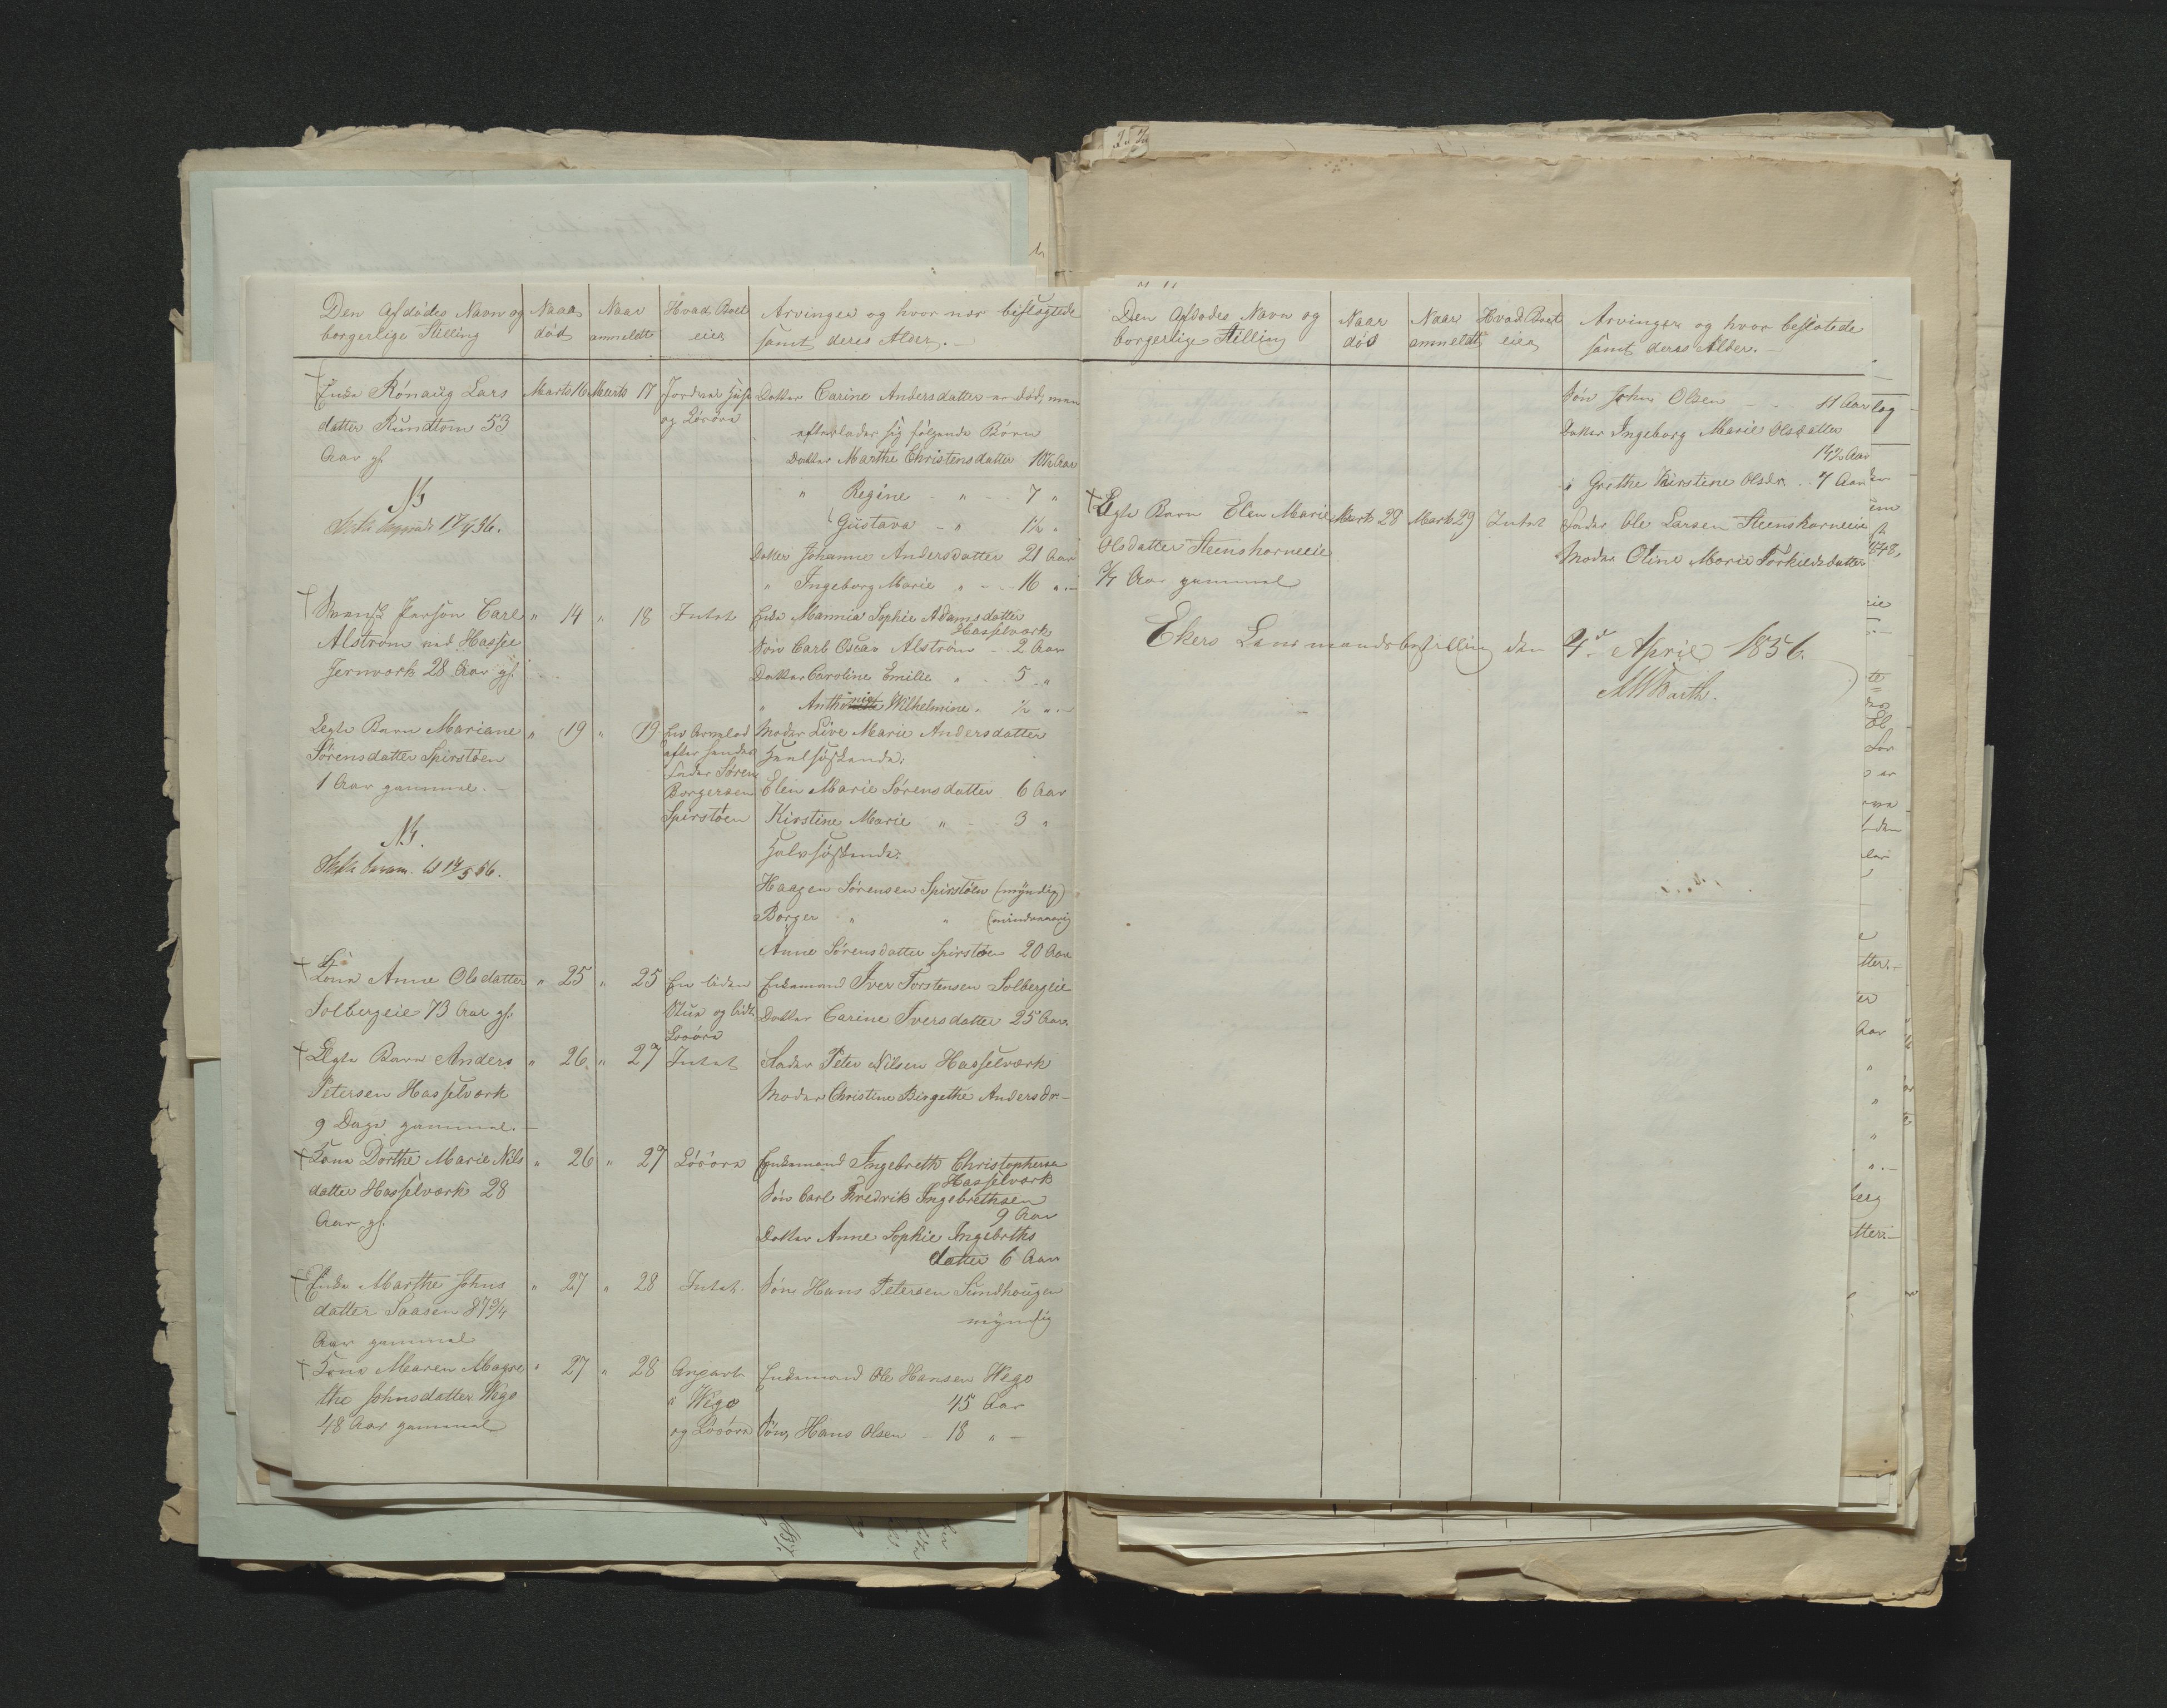 Den Afdødes Navn og
borgerlige Stilling
Naar
død
Naar
anmeldt
Hvad Boet
eier
Arvinger og hvor nær beslægtede
samt deres Alder.
Enke Rønaug Lars
datter Rundtom 53
Aar gl.
Marts 16 Marts 17
og Løsøre
Datter Carine Andersdatter er død, men
efterlader sig følgende Børn
Datter Marthe Christensdatter 10½ Aar
" Regine - " - 7 "
" Gustava - " 1½ "
Datter Johanne Andersdatter 21 Aar
" Ingeborg Marie " - 16 "
NB
Svensk Person Carl
Alstrøm ved Hassel
Jernværk 28 Aar gl.
" 14 " 18 Intet
Enke Mannia Sophie Adamsdatter
Hasselværk
Søn Carl Oscar Alstrøm - 2 Aar
Datter Caroline Emilie " - 5 "
" Wilhelmine " ½ "
Ægte Barn Mariane
Sørensdatter Spirstøen
1 Aar gammel.
" 19 " 19
En Arvelod
efter hendes
Fader Søren
Borgersen
Spirstøen
Moder Live Marie Andersdatter
Heelsøskende:
Elen Marie Sørensdatter 6 Aar
Kirstine Marie " - 3 "
Halvsøskende:
Haagen Sørensen Spirstøen (myndig)
Borger " " (mindreaarig
Anne Sørensdatter Spirstøen 20 Aar
NB.
Kone Anne Olsdatter
Solbergeie 73 Aar gl.
" 25 " 25
En liden
Stue og lidt
Løsøre
Enkemand Iver Torstensen Solbergeie
Datter Carine Iversdatter 25 Aar.
Ægte Barn Anders
Petersen Hasselværk
9 Dage gammel.
" 26 " 27 Intet
Fader Peter Nilsen Hasselværk
Moder Christine Birgethe Andersdr.
Kone Dorthe Marie Nils
datter Hasselværk 28
Aar gl.
" 26 " 27 Løsøre
Enkemand Ingebreth Christophersen
Hasselværk
Søn Carl Fredrik Ingebrethsen
9 Aar
Datter Anne Sophie Ingebrths
datter 6 Aar
Enke Marthe Johns
datter Saasen 87¾
Aar gammel
" 27 " 28 Intet.
Søn Hans Petersen Sundhougen
myndig
Kone Maren Magre
the Johnsdatter Wego
48 Aar gammel
" 27 " 28
Anpart
i Wego
og Løsøre
Enkemand Ole Hansen Wego
45 Aar
Søn Hans Olsen - 18 "
Den Afdødes Navn og
borgerlige Stilling
Naar
død
Naar
anmeldt
Hvad Boet
eier
Arvinger og hvor beslætede
samt deres Alder.
Søn John Olsen - - 11 Aar
Datter Ingeborg Marie Olsdatter
14½ Aar
" Grethe Kirstine Olsdr. - 7 Aar
Ægte Barn Elen Marie
Olsdatter Steenshorneeie
¾ Aar gammel
Marts 28 Marts 29 Intet
Fader Ole Larsen Steenshorneeie
Moder Oline Marie Torkildsdatter
Ekers Lensmandsbestilling den 4de April 1856.